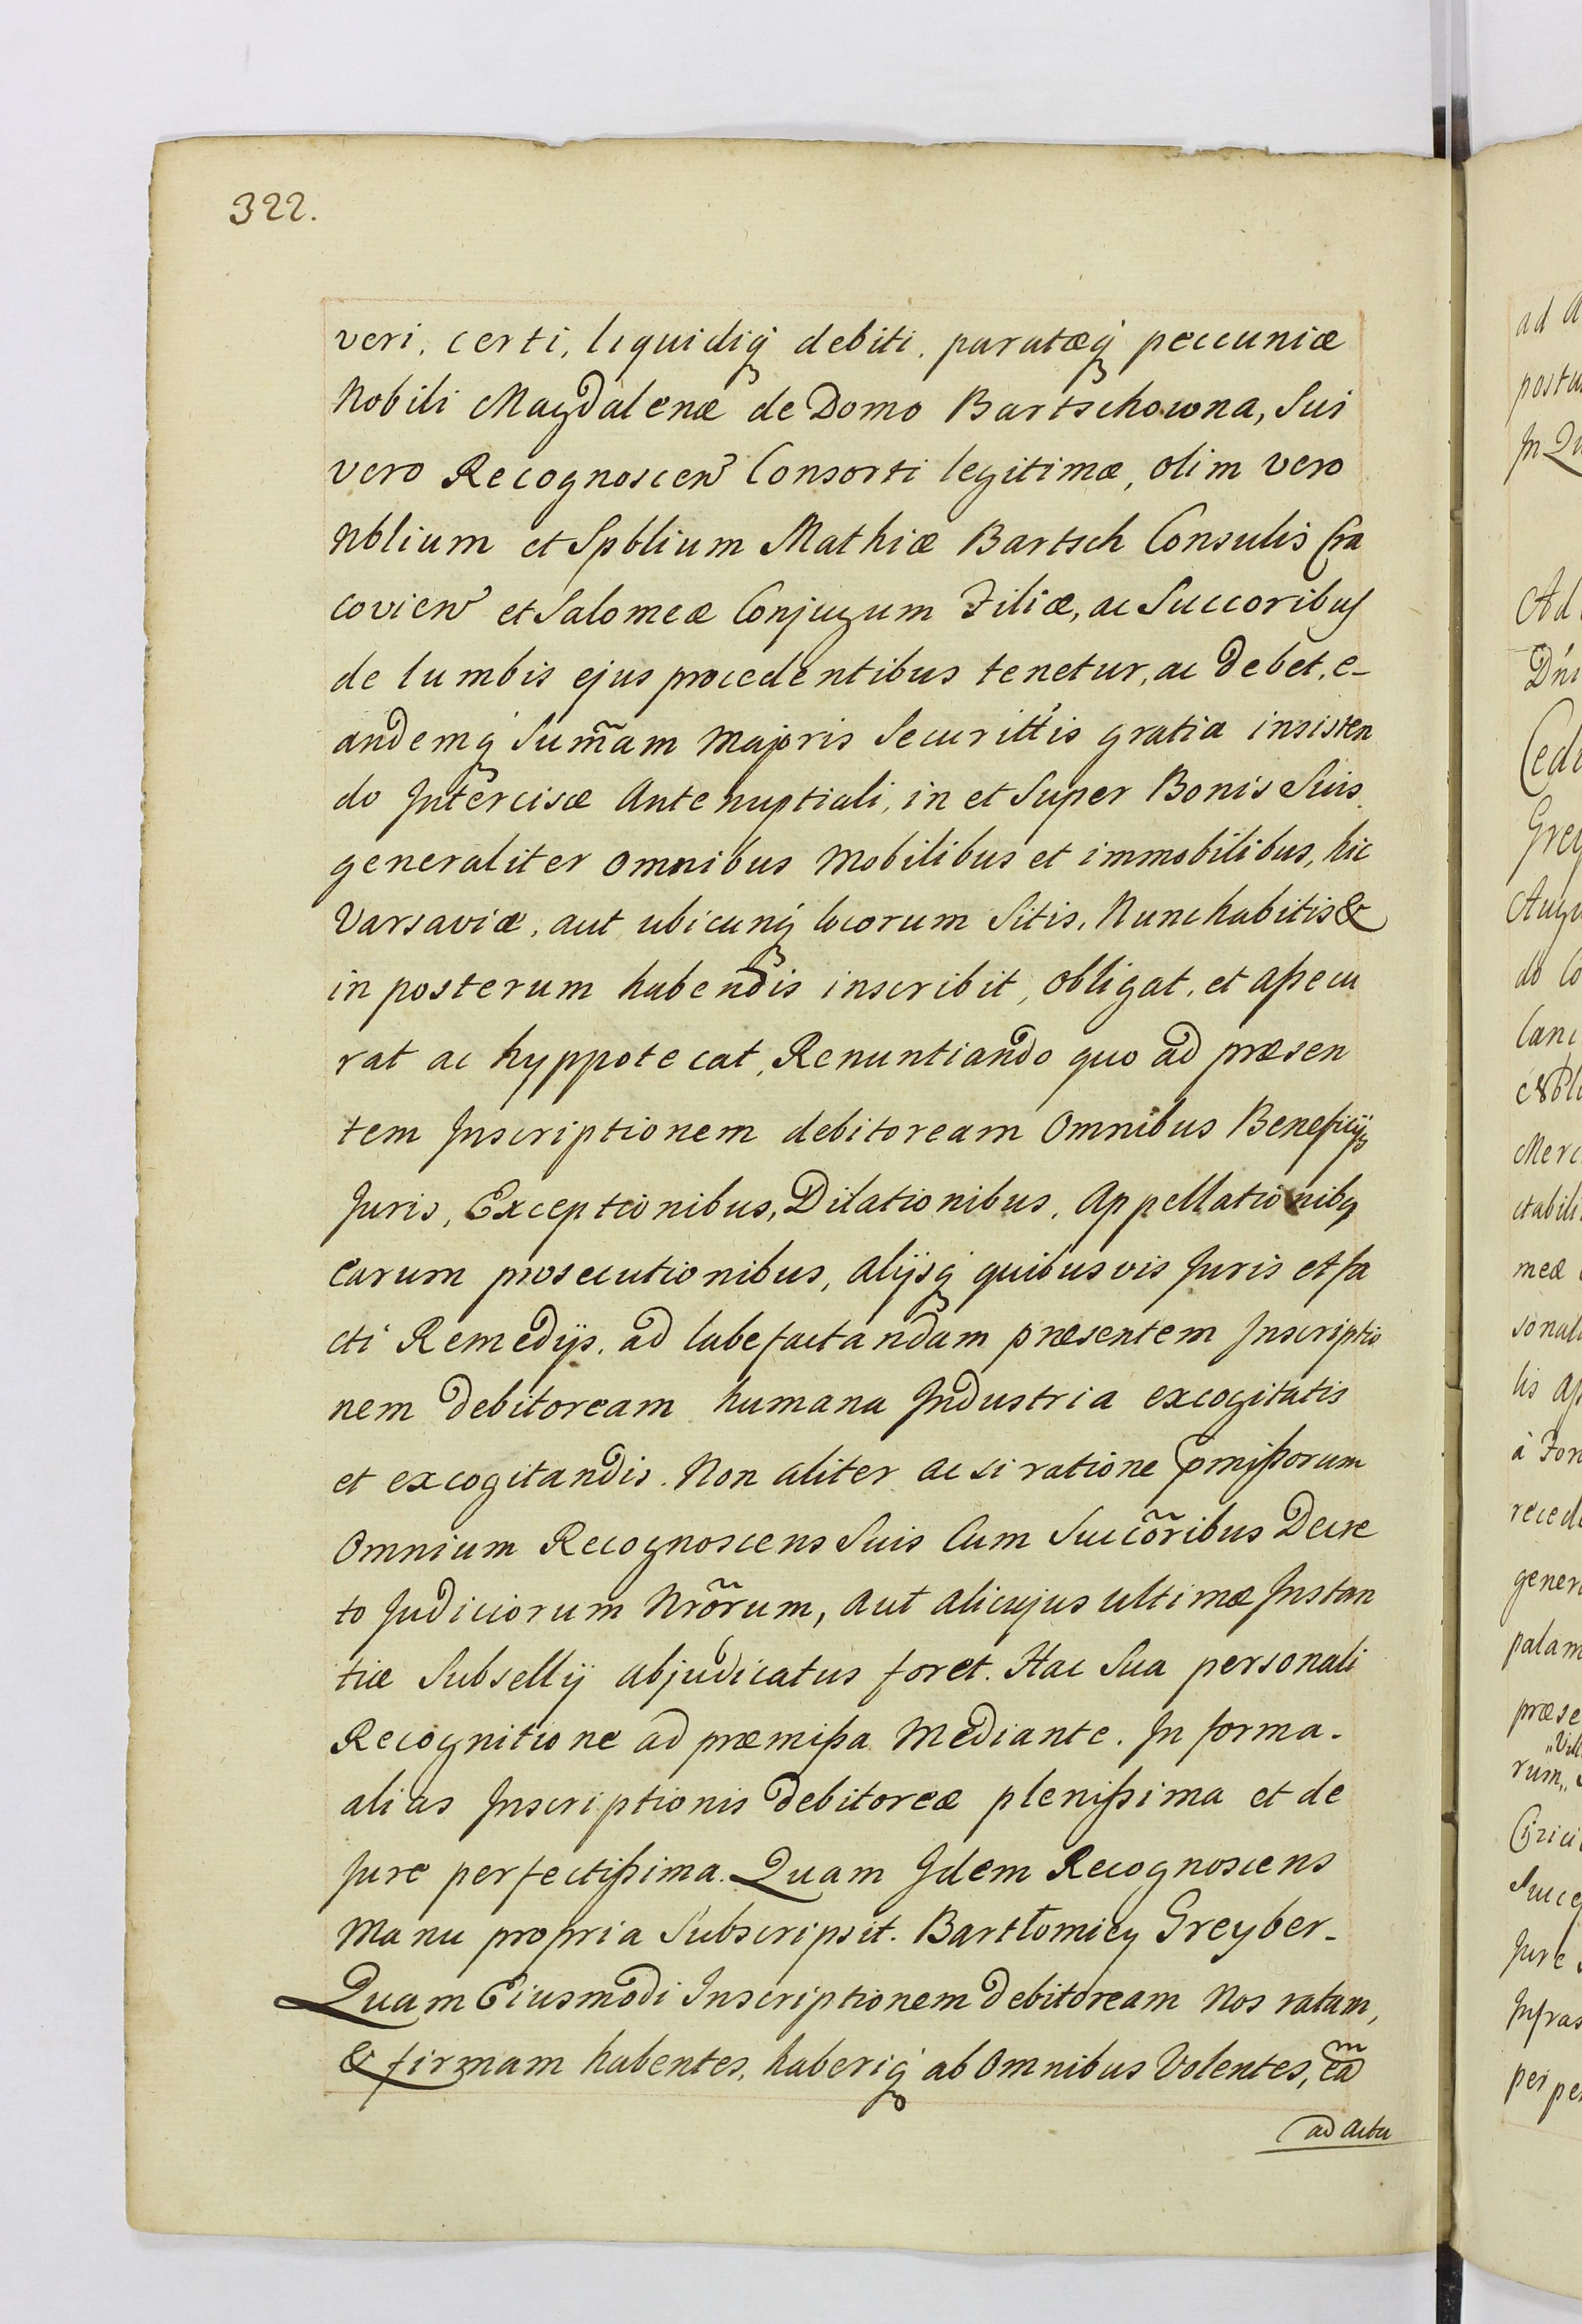 322.
veri, certi, liquidiq́ debiti, paratæq́ peccuniæ
Nobili Magdalenæ de Domo Bartschowna, Sui
vero Recognoscen̄ Consorti legitimæ, olim vero
Nblium et Spblium Mathiæ Bartsch Consulis Cra
covien̄ et Salomeæ Conjugum Filiæ, ac Succoribus
de lumbis ejus procedentibus tenetur, ac debet, e-
andemq́ Sum̃am Majoris Securitt̃is gratia insisten
do Intercisæ Antenuptiali, in et Super Bonis Suis
generaliter omnibus Mobilibus et immobilibus, hic
Varsaviæ, aut ubicunq́ locorum Sitis, Nunc habitis &
in posterum habendis inscribit, obligat, et aßecu
rat ac hyppotecat, Renuntiando quo ad præsen
tem Inscriptionem debitoream Omnibus Beneficijs
Juris, Exceptionibus, Dilationibus, Appellationibq
earum prosecutionibus, alijsq́ quibusvis Juris et fa
cti Remedijs, ad labefactandam præsentem Inscriptio
nem debitoream humana Industria excogitatis
et excogitandis. Non aliter ac si ratione pmißorum
Omnium Recognoscens Suis Cum Succõribus Decre
to Judiciorum Nrõrum, aut alicujus ultimæ Instan
tiæ Subsellij abjudicatus foret. Hac Sua personali
Recognitione ad præmißa Mediante. In forma-
alias Inscriptionis debitoreæ plenißima et de
Jure perfectißima. Quam Idem Recognoscens
Manu propria Subscripsit. Bartłomiey Greyber-
Quam Eiusmodi Inscriptionem debitoream Nos ratam,
& firmam habentes, haberiq́ ab Omnibus Volentes, eãd
ad Acta
ad
In
Ad
Cedu
do Co
Canc
Merc
meæ
lis
à For
recede
gener
palam
præse
rum
Jure
Infras
per